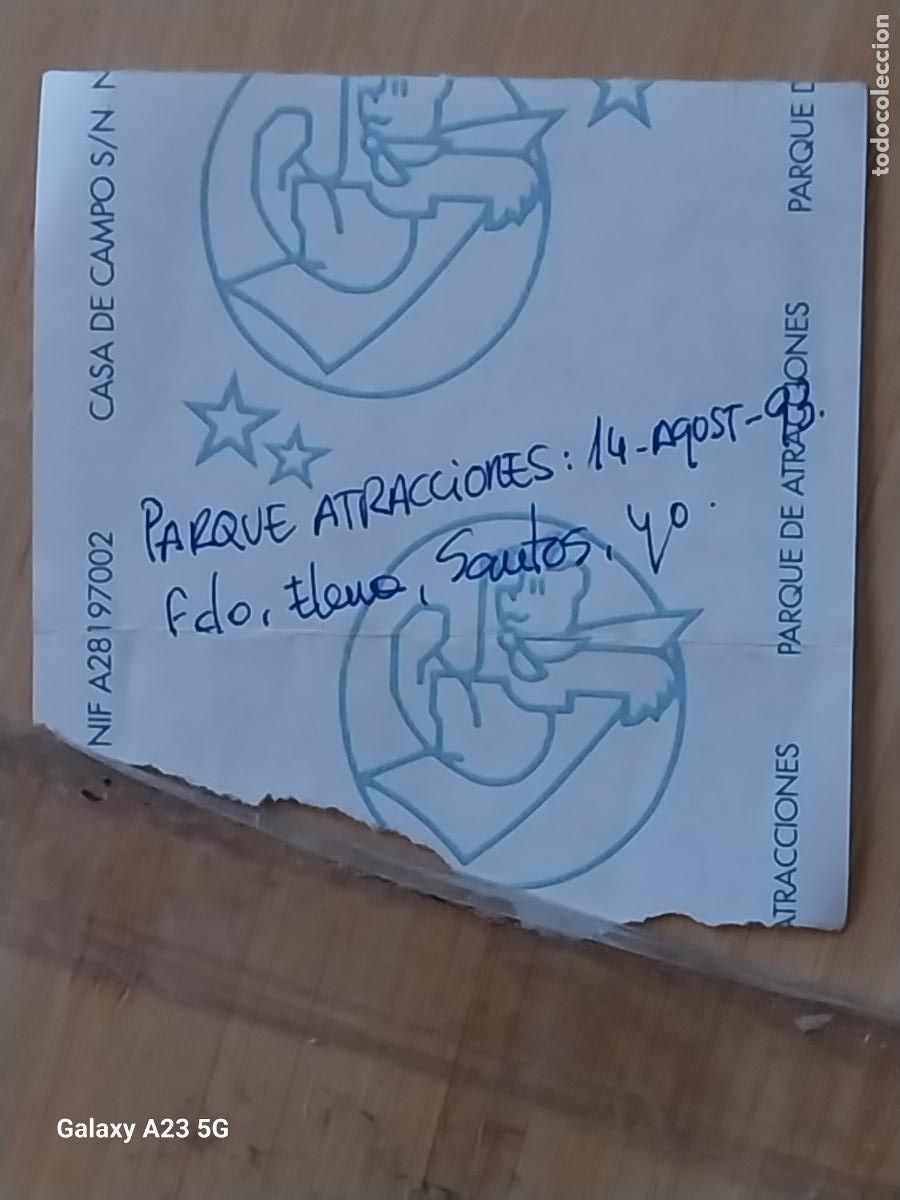 todocoleccion
CASA DE CAMPO S/N
NIF A28197002
PARQUE D
PARQUE DE ATRACCIONES
ATRACCIONES
PARQUE ATRACCIONES: 14-AGOST-93.
Fdo, Elena, Santos, yo.
Galaxy A23 5G